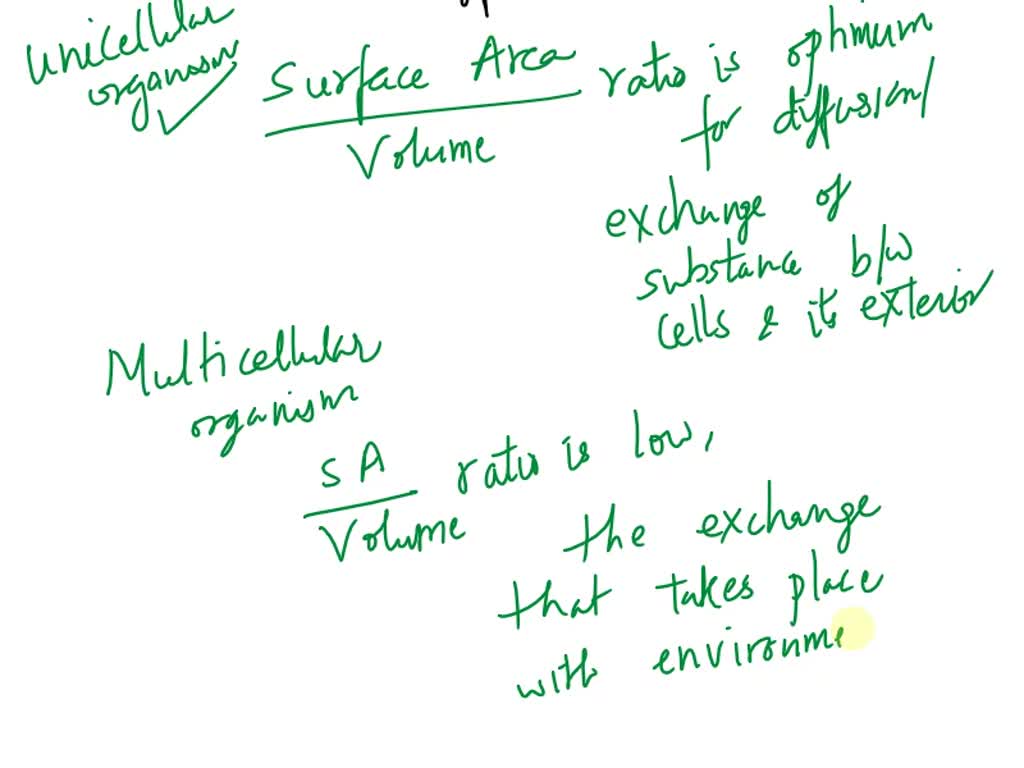 Unicellular
organism
Surface Area
Volume
ratio is ophmum
for diffusion/
exchange of
substance b/w
cells & its exterior
Multicellular
organism
SA
Volume
ratio is low,
the exchange
that takes place
with environme